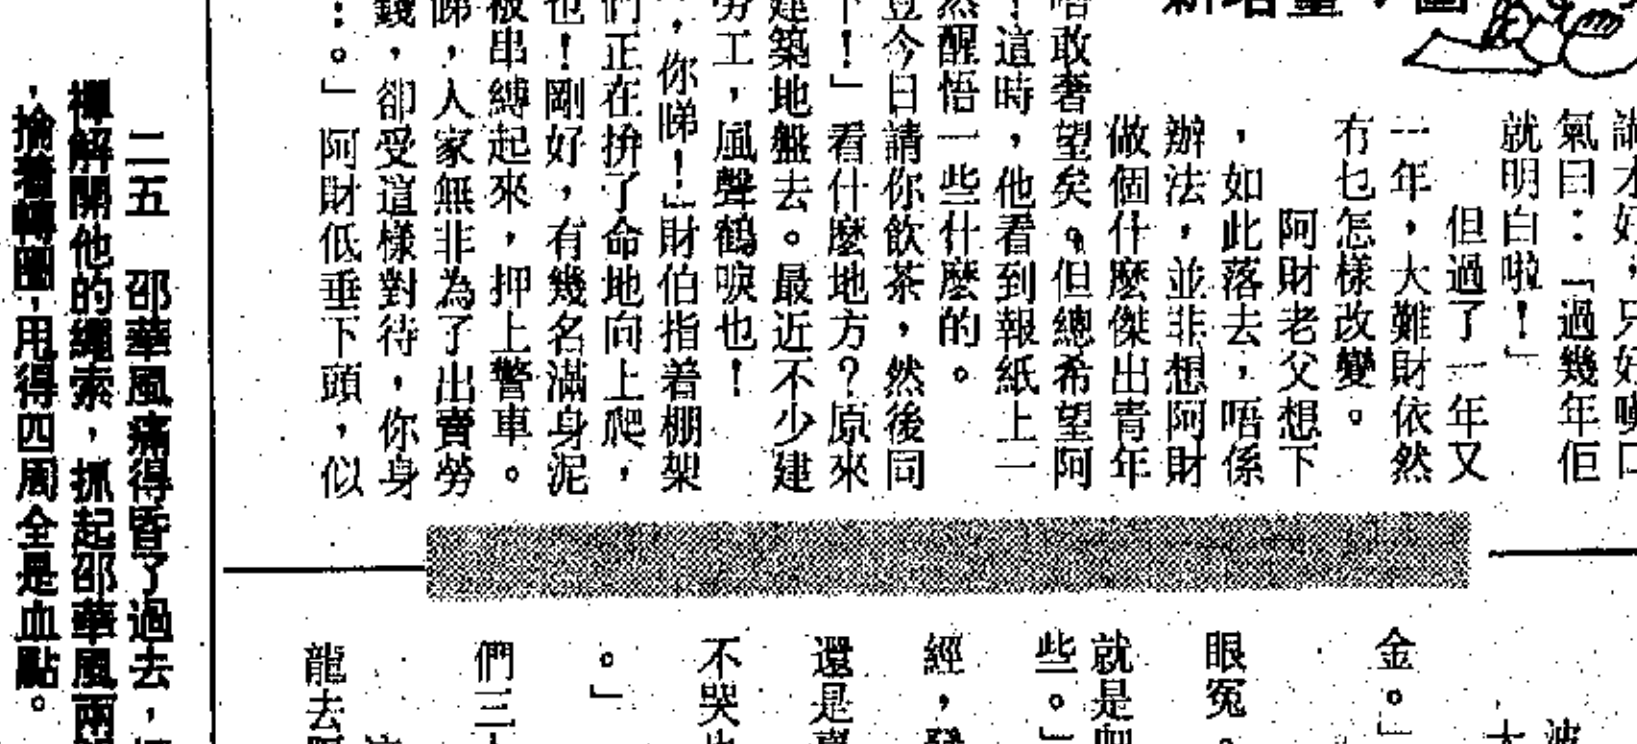 識才好，只好嘆口
氣曰：「過幾年佢
就明白啦！」
但過了一年又
一年，大難財依然
冇乜怎樣改變。
阿財老父想下
，如此落去，唔係
辦法，並非想阿財
做個什麼傑出青年
唔敢奢望矣。但總希望阿
！這時，他看到報紙上一
然醒悟一些什麼的。
豈今日請你飲茶，然後同
下！」看什麼地方？原來
建築地盤去。最近不少建
勞工，風聲鶴唳也！
，你睇！」財伯指着棚架
們正在拚了命地向上爬，
也！剛好，有幾名滿身泥
被串縛起來，押上警車。
睇，人家無非為了出賣勞
錢，卻受這樣對待，你身
…。」阿財低垂下頭，似
金。」
眼冤。
就是
些。」
經，發
還是
不哭
。」
們三
龍去
二五 邵華風痛得昏了過去，
禪解開他的繩索，抓起邵華風兩
，掄着轉圈，用得四周全是血點。